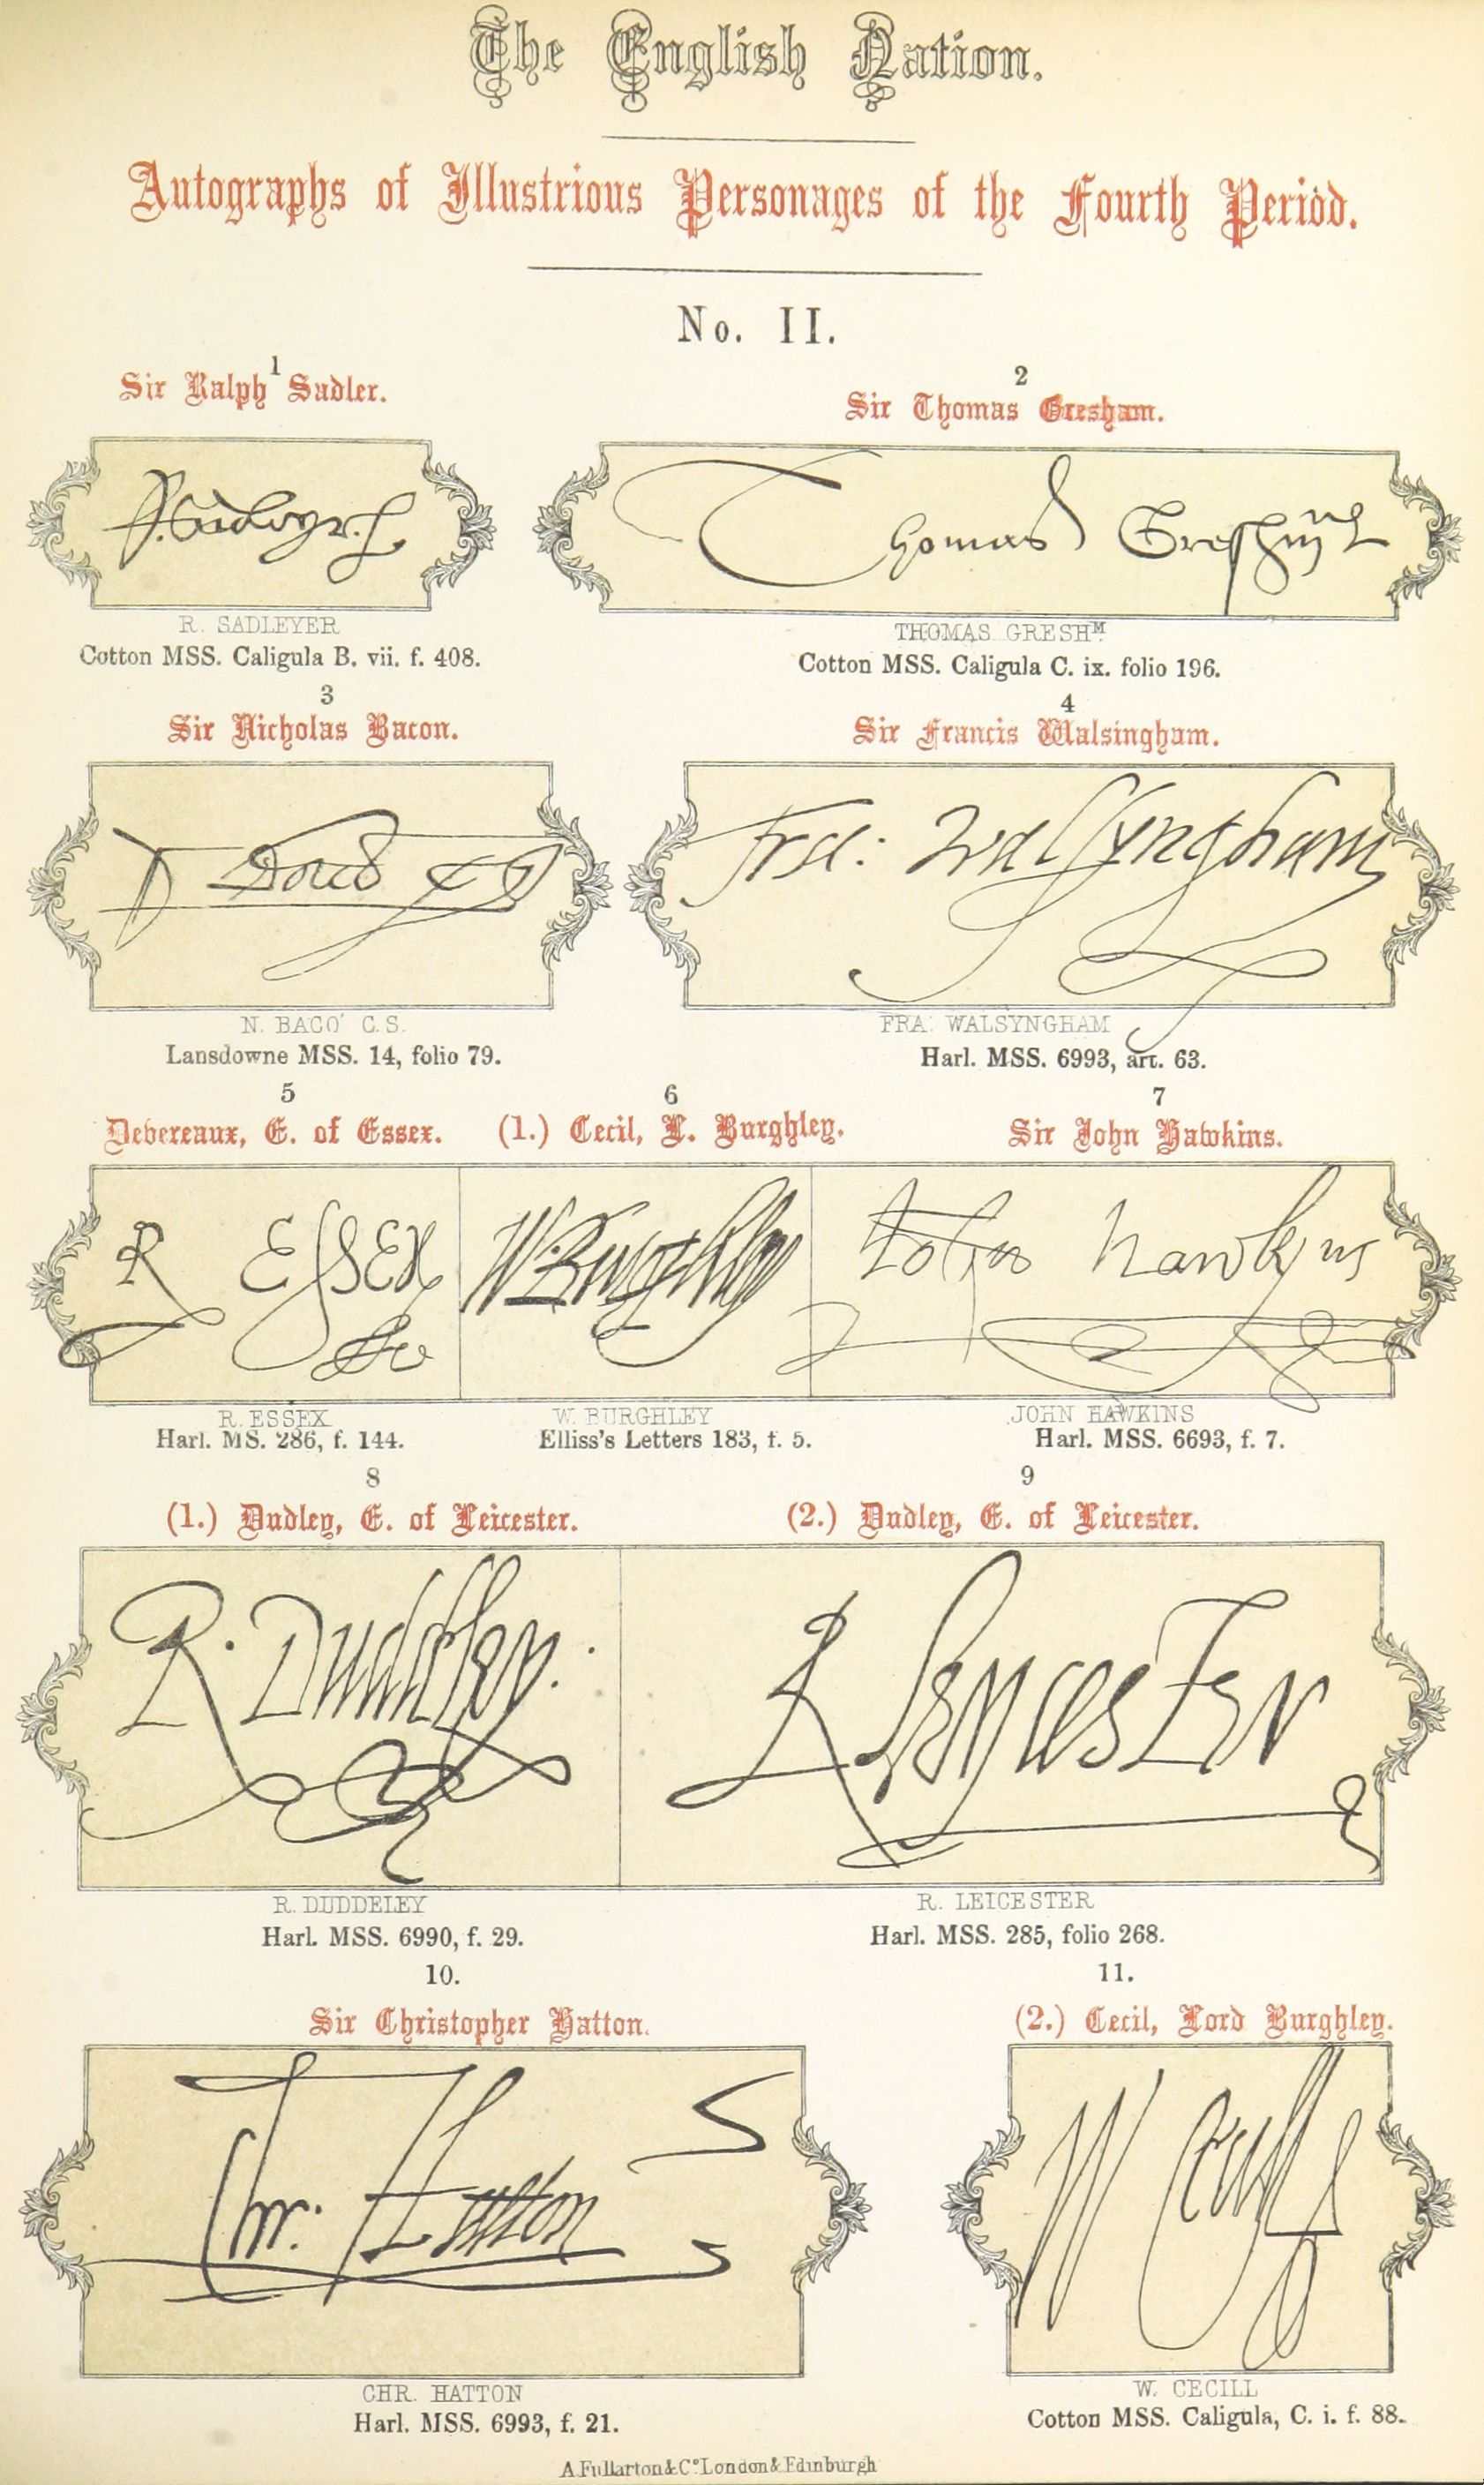 The English Nation.
Autographs of Illustrious Personages of the Fourth Period.
No. II.
1
Sir Ralph Sadler.
R. Sadleyer
R. SADLEYER
Cotton MSS. Caligula B. vii. f. 408.
2
Sir Thomas Gresham.
Thomas Greshm
THOMAS GRESHM
Cotton MSS. Caligula C. ix. folio 196.
3
Sir Nicholas Bacon.
N. BACO' C.S.
Lansdowne MSS. 14, folio 79.
4
Sir Francis Walsingham.
Fra: Walsyngham
FRA: WALSYNGHAM
Harl. MSS. 6993, art. 63.
5
Devereaux, E. of Essex.
R Essex
R. ESSEX
Harl. MS. 286, f. 144.
6
(1.) Cecil, L. Burghley.
W. Burghley
W. BURGHLEY
Elliss's Letters 183, f. 5.
7
Sir John Hawkins.
John Hawkyns
JOHN HAWKINS
Harl. MSS. 6693, f. 7.
8
(1.) Dudley, E. of Leicester.
R. Duddeley.
R. DUDDELEY
Harl. MSS. 6990, f. 29.
9
(2.) Dudley, E. of Leicester.
R Leycester
R. LEICESTER
Harl. MSS. 285, folio 268.
10.
Sir Christopher Hatton.
Chr: Hatton
CHR. HATTON
Harl. MSS. 6993, f. 21.
11.
(2.) Cecil, Lord Burghley.
W Cecill
W. CECILL
Cotton MSS. Caligula, C. i. f. 88.
A. Fullarton & Co. London & Edinburgh